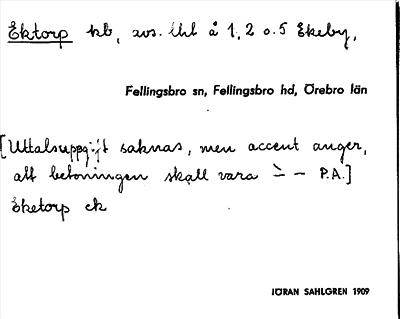 Ektorp kb, avs. lht å 1, 2 o. 5 Ekeby,
Fellingsbro sn, Fellingsbro hd, Örebro län
[Uttalsuppgift saknas, men accent anger,
att betoningen skall vara – P.A.]
Eketorp ek
JÖRAN SAHLGREN 1909